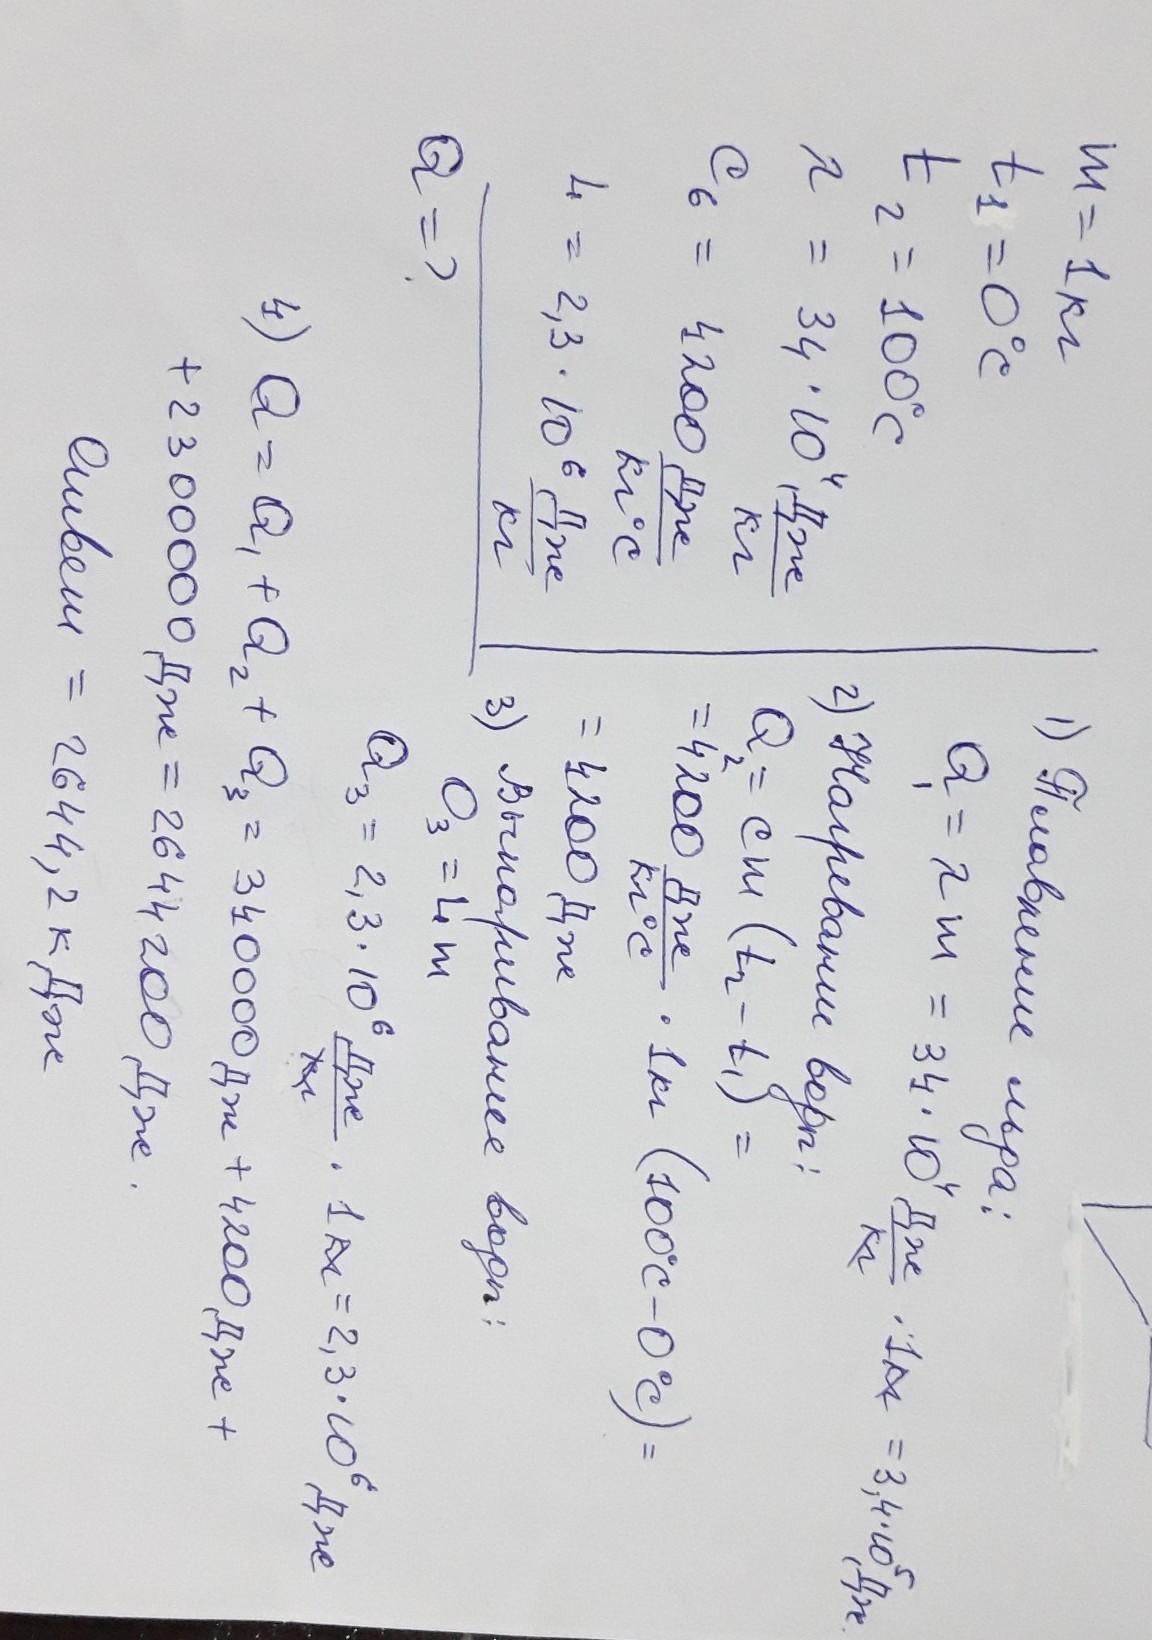 m = 1кг
t₁ = 0°C
t₂ = 100°C
λ = 34 · 10⁴ Дж/кг
Cв = 4200 Дж/кг°C
L = 2,3 · 10⁶ Дж/кг
Q = ?
1) Плавление льда:
Q₁ = λ m = 34 · 10⁴ Дж/кг · 1кг = 3,4 · 10⁵ Дж.
2) Нагревание воды:
Q₂ = cm (t₂ – t₁) =
= 4200 Дж/кг°C · 1кг (100°C – 0°C) =
= 4200 Дж
3) Выпаривание воды:
Q₃ = Lm
Q₃ = 2,3 · 10⁶ Дж/кг · 1кг = 2,3 · 10⁶ Дж
4) Q = Q₁ + Q₂ + Q₃ = 340000 Дж + 4200 Дж +
+ 2300000 Дж = 2644200 Дж.
Ответ = 2644,2 кДж